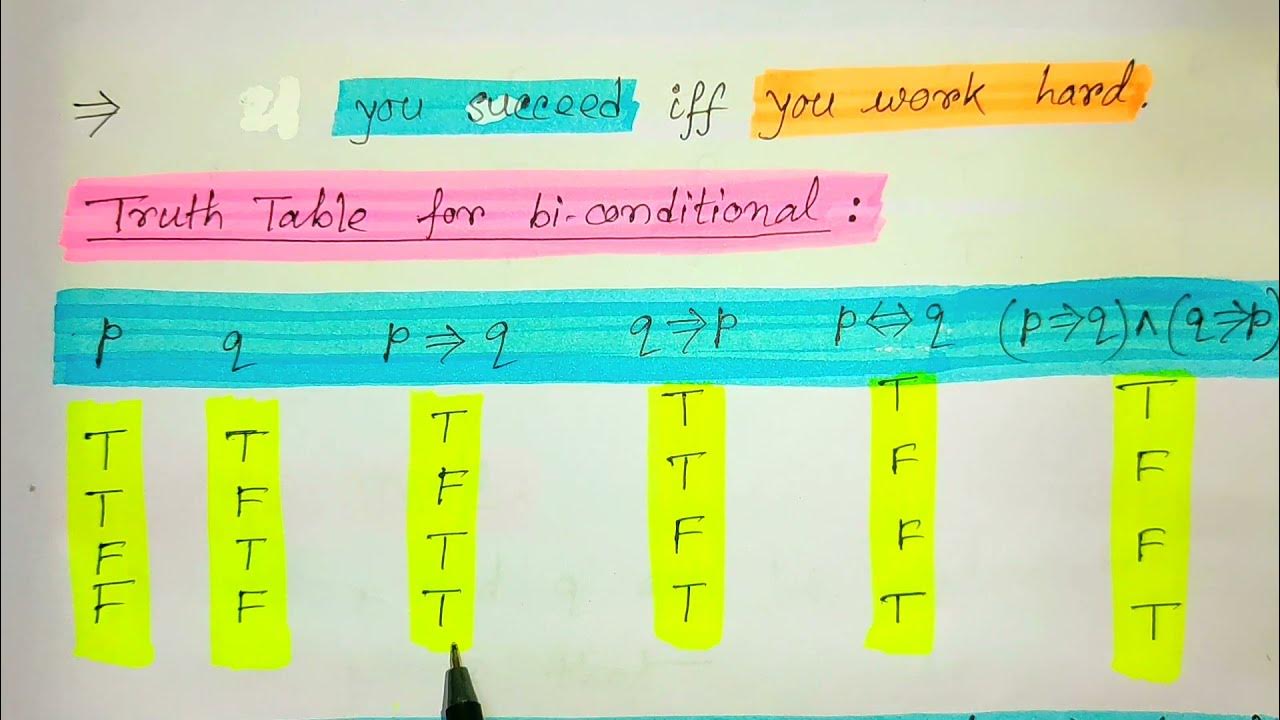 ⇒ you succeed iff you work hard.
Truth Table for bi-conditional :
p q p⇒q q⇒p p⇔q (p⇒q)∧(q⇒p)
T T T T T T
T F F T F F
F T T F F F
F F T T T T